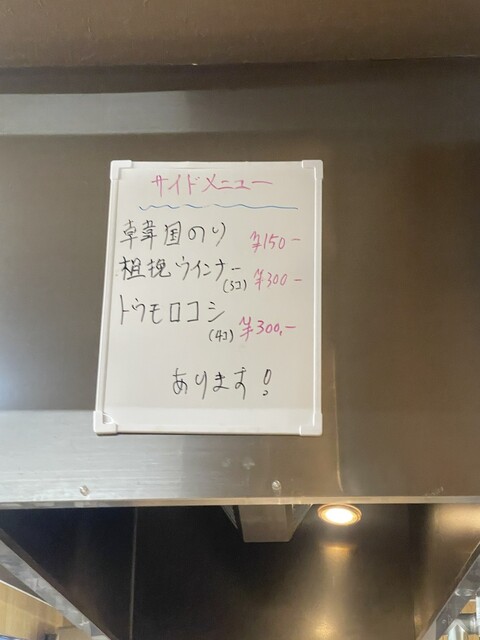 サイドメニュー
韓国のり ¥150-
粗挽ウインナー(5コ) ¥300-
トウモロコシ(4コ) ¥300,-
あります!